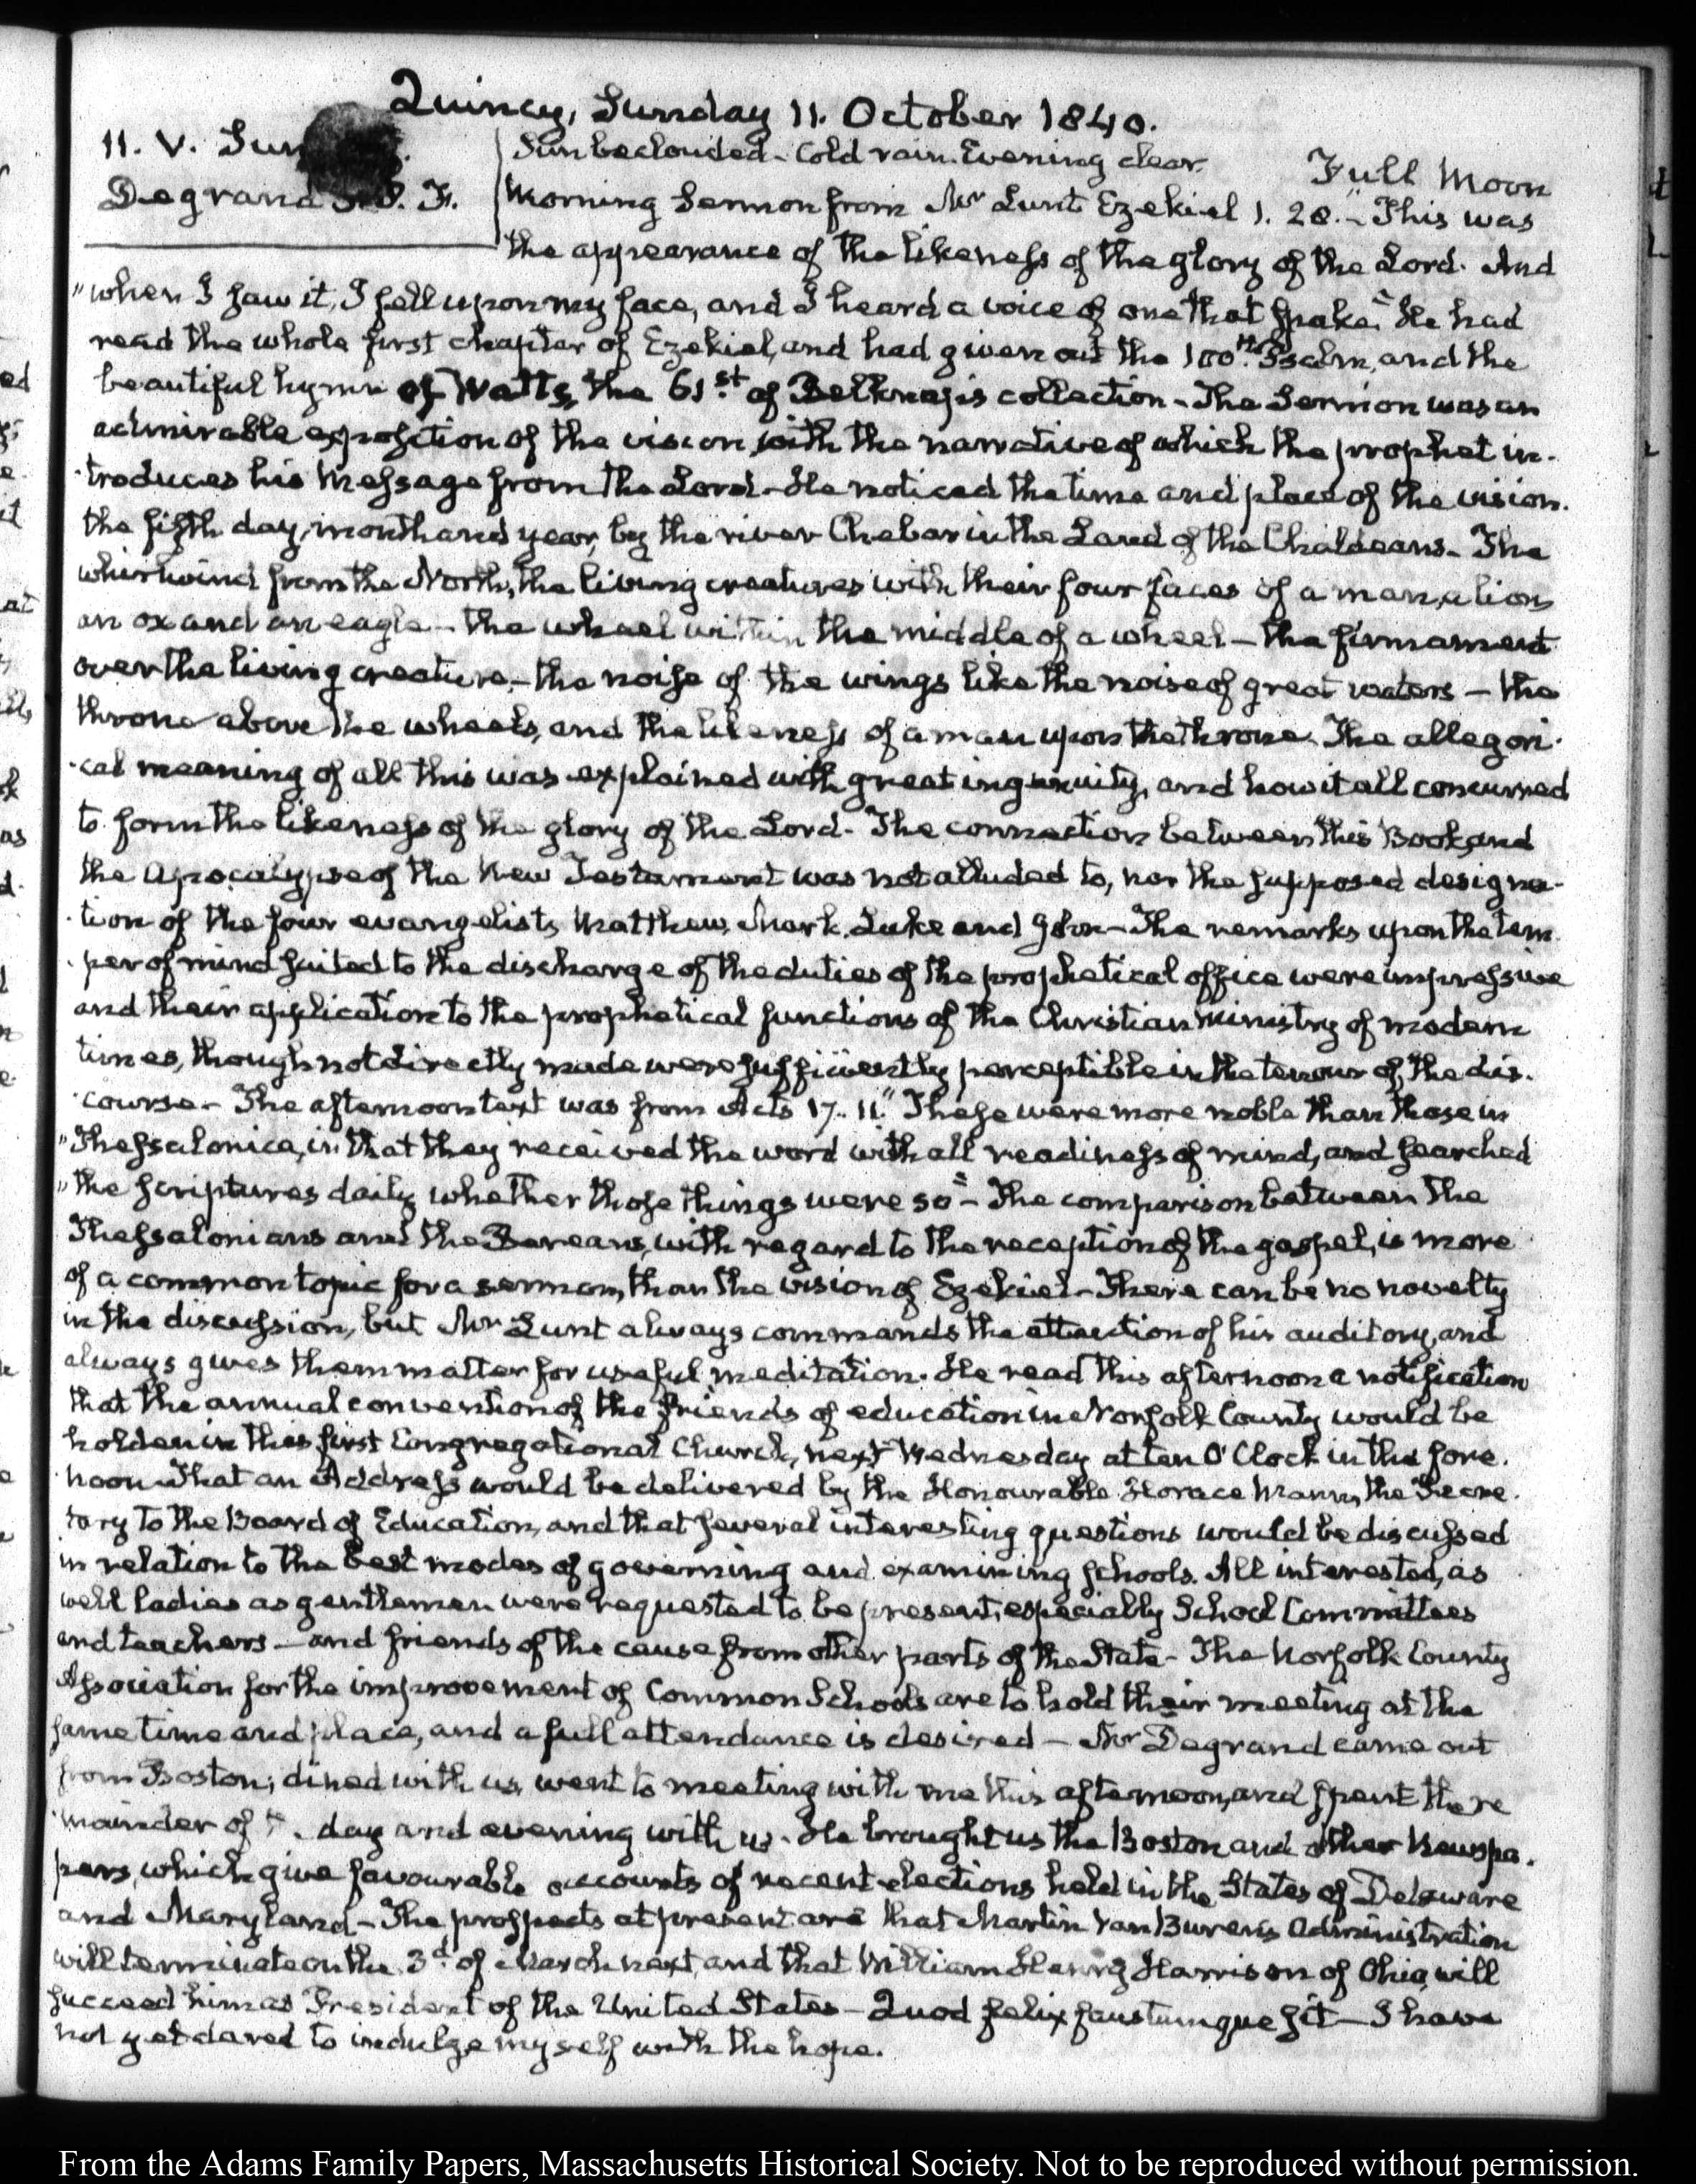 Quincy, Sunday 11. October 1840.
11. V. Sun
Degrand P. F.
Sun beclouded - Cold rain. Evening clear.
Full Moon
Morning Sermon from Mr Lunt Ezekiel 1. 28. "This was
the appearance of the likeness of the glory of the Lord. And
"when I saw it, I fell upon my face, and I heard a voice of one that spake." He had
read the whole first chapter of Ezekiel, and had given out the 100th Psalm, and the
beautiful hymn of Watts, the 61st of Belknap's collection - The Sermon was an
admirable exposition of the vision, with the narrative of which the prophet in-
troduces his Message from the Lord - He noticed the time and place of the vision.
the fifth day, month and year, by the river Chebar in the Land of the Chaldeans - The
whirlwind from the North, the living creatures with their four faces of a man, a lion,
an ox and an eagle - the wheel within the middle of a wheel - the firmament
over the living creature, - the noise of the wings like the noise of great waters - the
throne above the wheels, and the likeness of a man upon the throne. The allegori-
cal meaning of all this was explained with great ingenuity, and how it all concurred
to form the likeness of the glory of the Lord - The connection between this Book, and
the Apocalypse of the New Testament was not alluded to, nor the supposed designa-
tion of the four evangelists Matthew, Mark, Luke and John - The remarks upon the tem-
per of mind suited to the discharge of the duties of the prophetical office were impressive
and their application to the prophetical functions of the Christian Ministry of modern
times, though not directly made were sufficiently perceptible in the tenour of the dis-
course - The afternoon text was from Acts 17. 11. "These were more noble than those in
"Thessalonica, in that they received the word with all readiness of mind, and searched
"the scriptures daily whether those things were so" - The comparison between the
Thessalonians and the Bereans, with regard to the reception of the gospel, is more
of a common topic for a sermon, than the vision of Ezekiel - There can be no novelty
in the discussion, but Mr Lunt always commands the attention of his auditory, and
always gives them matter for useful meditation. He read this afternoon a notification
that the annual convention of the friends of education in Norfolk County would be
holden in this first Congregational Church, next Wednesday at ten O'Clock in the fore-
noon - That an Address would be delivered by the Honourable Horace Mann, the Secre-
tary to the Board of Education, and that several interesting questions would be discussed
in relation to the best modes of governing and examining schools. All interested, as
well ladies as gentlemen were requested to be present, especially School Committees
and teachers - and friends of the cause from other parts of the State - The Norfolk County
Association for the improvement of Common Schools are to hold their meeting at the
same time and place, and a full attendance is desired - Mr Degrand came out
from Boston; dined with us, went to meeting with me this afternoon, and spent the re
mainder of day and evening with us. He brought us the Boston and other Newspa-
pers, which give favourable accounts of recent elections held in the States of Delaware
and Maryland - The prospects at present are that Martin Van Buren's Administration
will terminate on the 3d of March next, and that William Henry Harrison of Ohio, will
succeed him as President of the United States - Quod felix faustumque sit - I have
not yet dared to indulge myself with the hope.
From the Adams Family Papers, Massachusetts Historical Society. Not to be reproduced without permission.